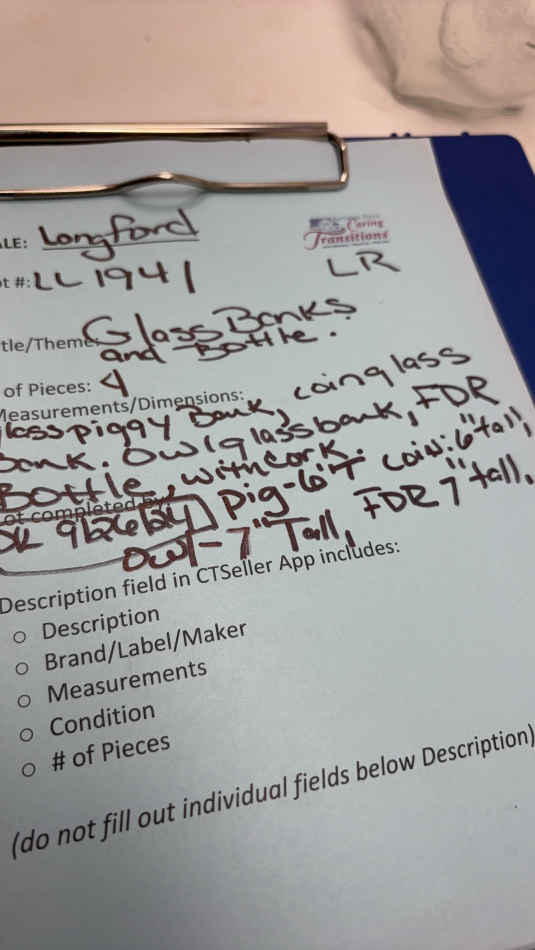 LE: Longford
Caring
Transitions
t #: LL 1941
LR
tle/Theme: Glass Banks
and Bottle.
of Pieces: 4
Measurements/Dimensions:
lass piggy Bank, coin glass
Bank. Owl glass bank, FDR
Bottle, with cork.
Pig-6"T coin: 6" tall,
ot completed by
Owl-7" Tall, FDR 7" tall.
Description field in CTSeller App includes:
○ Description
○ Brand/Label/Maker
○ Measurements
○ Condition
○ # of Pieces
(do not fill out individual fields below Description)